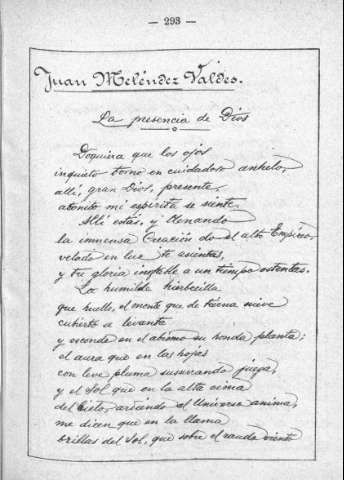 — 293 —
Juan Meléndez Valdes.
La presencia de Dios
Doquiera que los ojos
inquieto torno en cuidadoso anhelo,
allí, gran Dios, presente,
atonito mi espiritu se siente.
Allí estás, y llenando
la inmensa Creación do el alto Empireo,
velado en luz te asientas,
y tu gloria inefable a un tiempo ostentas.
La humilde hierbecilla
que huello, el monte que de eterna nieve
cubierto a levante
y esconde en el abismo su honda planta;
el aura que en las hojas
con leve pluma susurrando juega,
y el Sol que en la alta cima
del Cielo, ardiendo el Universo anima,
me dicen que en la llama
brillas del Sol, que sobre el raudo viento